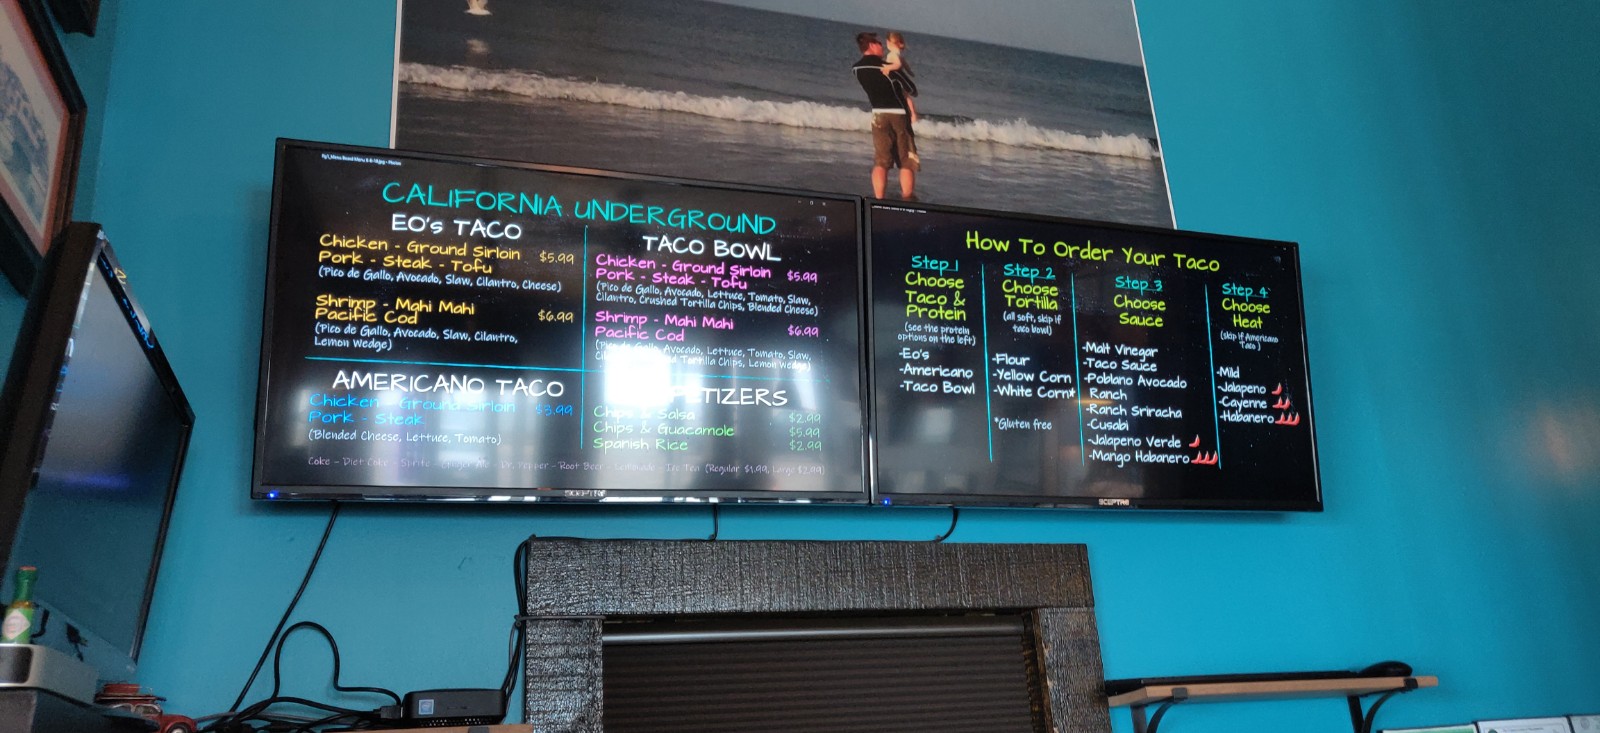 CALIFORNIA UNDERGROUND
EO's TACO
Chicken - Ground Sirloin
Pork - Steak - Tofu
$5.99
(Pico de Gallo, Avocado, Slaw, Cilantro, Cheese)
Shrimp - Mahi Mahi
Pacific Cod
$6.99
(Pico de Gallo, Avocado, Slaw, Cilantro,
Lemon Wedge)
TACO BOWL
Chicken - Ground Sirloin
Pork - Steak - Tofu
$5.99
(Pico de Gallo, Avocado, Lettuce, Tomato, Slaw,
Cilantro, Crushed Tortilla Chips, Blended Cheese)
Shrimp - Mahi Mahi
Pacific Cod
$6.99
(Pico de Gallo, Avocado, Lettuce, Tomato, Slaw,
Tortilla Chips, Lemon Wedge)
AMERICANO TACO
Chicken - Ground Sirloin
$3.99
Pork - Steak
(Blended Cheese, Lettuce, Tomato)
PETIZERS
Chips & Salsa $2.99
Chips & Guacamole $5.99
Spanish Rice $2.99
Coke - Diet Coke - Sprite - Ginger Ale - Dr. Pepper - Root Beer - Lemonade - Ice Tea (Regular $1.99, Large $2.49)
SCEPTRE
How To Order Your Taco
Step 1
Choose
Taco &
Protein
(see the protein
options on the left)
-Eo's
-Americano
-Taco Bowl
Step 2
Choose
Tortilla
(all soft, skip if
taco bowl)
-Flour
-Yellow Corn
-White Corn*
*Gluten free
Step 3
Choose
Sauce
-Malt Vinegar
-Taco Sauce
-Poblano Avocado
Ranch
-Ranch Sriracha
-Cusabi
-Jalapeno Verde
-Mango Habanero
Step 4
Choose
Heat
(skip if Americano
Taco)
-Mild
-Jalapeno
-Cayenne
-Habanero
SCEPTRE